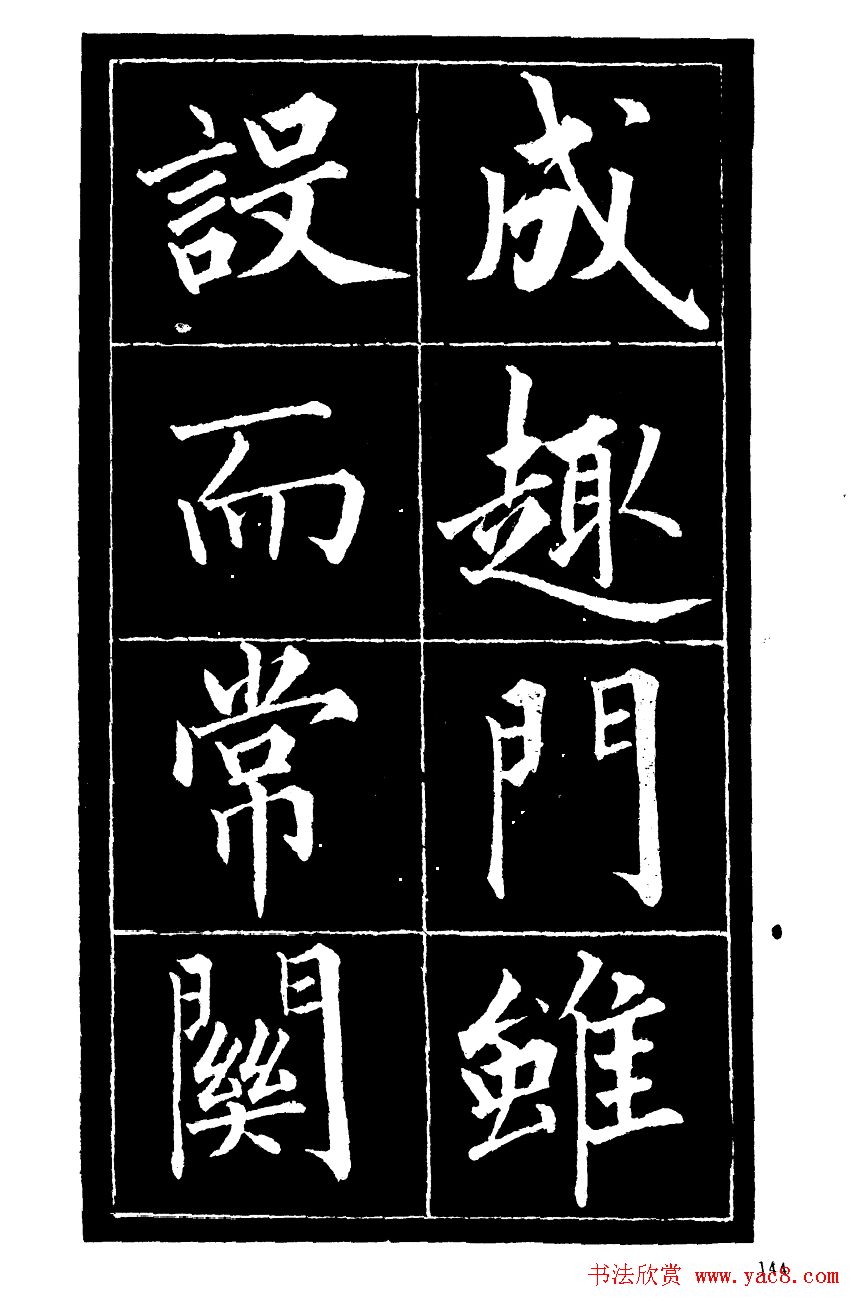 成趣門雖
設而常關
144
书法欣赏 www.yac8.com